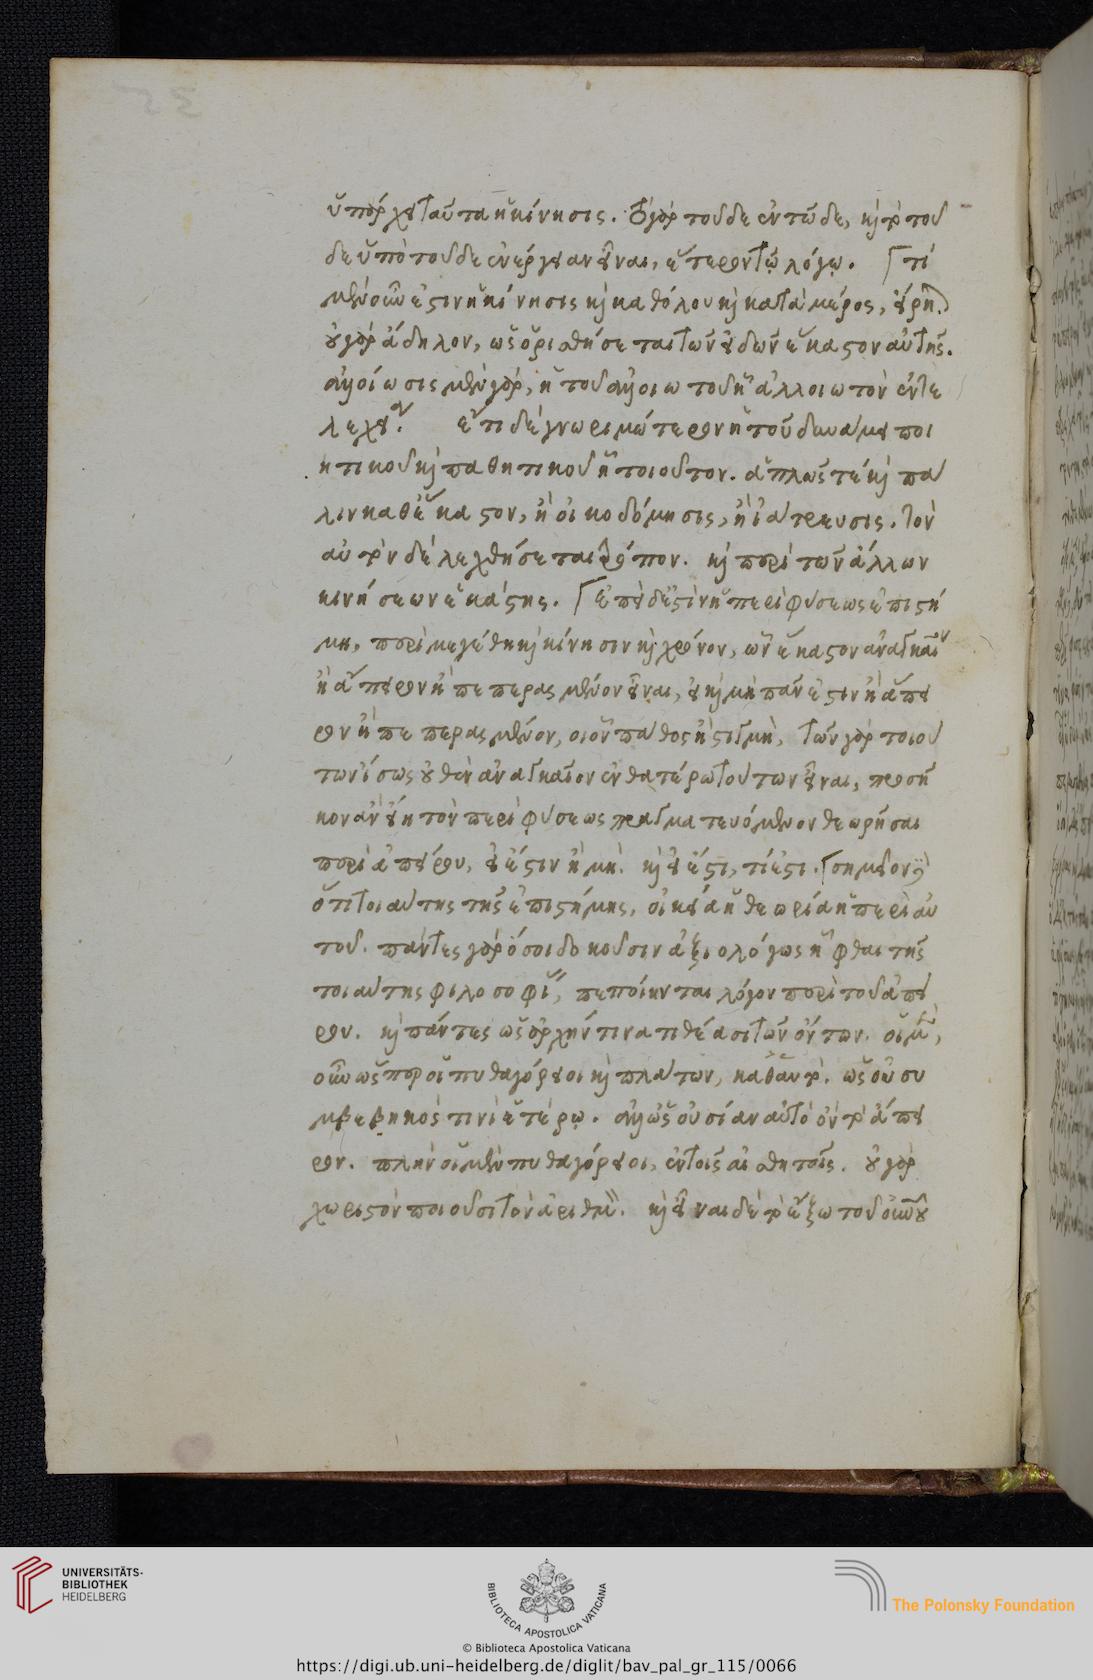 ὑπάρχει ταῦτα ἡ κίνησις. τὸ γὰρ τοῦδε ἐν τῶδε, καὶ τὸ τοῦ
δε ὑπὸ τοῦδε ἐνέργειαν εἶναι, ἕτερον τῷ λόγῳ. τί
μὲν οὖν ἐστιν ἡ κίνησις καὶ καθόλου καὶ κατὰ μέρος, εἴρηται.
οὐ γὰρ ἄδηλον, πῶς ὁρισθήσεται τῶν εἰδῶν ἕκαστον αὐτῆς.
ἀλλοίωσις μὲν γὰρ, ἡ τοῦ ἀλλοιωτοῦ ἢ ἀλλοιωτὸν ἐντε
λέχεια. ἔτι δὲ γνωριμώτερον ἡ τοῦ δυνάμει ποι
ητικοῦ καὶ παθητικοῦ ἢ τοιοῦτον. ἁπλῶς τέ καὶ πά
λιν καθ' ἕκαστον, ἢ οἰκοδόμησις, ἢ ἰάτρευσις. τὸν
αὐτὸν δὲ λεχθήσεται τρόπον. καὶ περὶ τῶν ἄλλων
κινήσεων ἑκάστης. ἐπεὶ δ' ἐστὶν ἡ περὶ φύσεως ἐπιστή
μη, περὶ μεγέθη καὶ κίνησιν καὶ χρόνον, ὧν ἕκαστον ἀναγκαῖον
ἢ ἄπειρον ἢ πεπερασμένον εἶναι, εἰ καὶ μὴ πᾶν ἐστιν ἢ ἄπει
ρον ἢ πεπερασμένον, οἷον πάθος ἢ στιγμὴ, τῶν γὰρ τοιού
των ἴσως οὐθὲν ἀναγκαῖον ἐν θατέρω τούτων εἶναι, προσῆ
κον ἂν εἴη τὸν περὶ φύσεως πραγματευόμενον θεωρῆσαι
περὶ ἀπείρου, εἰ ἔστιν ἢ μὴ. καὶ εἰ ἔστι, τί ἐστι. σημεῖον δὲ
ὅτι τοιαύτης τῆς ἐπιστήμης, οἰκεία ἡ θεωρία ἡ περὶ αὐ
τοῦ. πάντες γὰρ ὅσοι δοκοῦσιν ἀξιολόγως ἧφθαι τῆς
τοιαύτης φιλοσοφίας, πεποίηνται λόγον περὶ τοῦ ἀπεί
ρου. καὶ πάντες ὡς ἀρχήν τινα τιθέασι τῶν ὄντων. οἱ μὲν,
οὖν ὥσπερ οἱ πυθαγόρειοι καὶ πλάτων, καθ' αὑτὸ. ὡς οὐ συ
μβεβηκὸς τινὶ ἑτέρῳ. ἀλλ' ὡς οὐσίαν αὐτὸ ὂν τὸ ἄπει
ρον. πλὴν οἱ μὲν πυθαγόρειοι, ἐν τοῖς αἰσθητοῖς. οὐ γὰρ
χωριστὸν ποιοῦσι τὸν ἀριθμὸν. καὶ εἶναι δὲ τὸ ἔξω τοῦ οὐρανοῦ
UNIVERSITÄTS-
BIBLIOTHEK
HEIDELBERG
BIBLIOTECA APOSTOLICA VATICANA
The Polonsky Foundation
© Biblioteca Apostolica Vaticana
https://digi.ub.uni-heidelberg.de/diglit/bav_pal_gr_115/0066